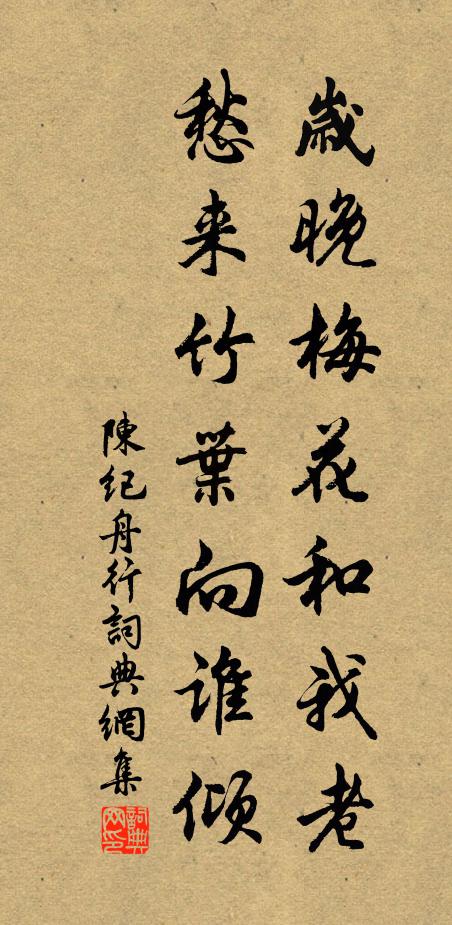 歲晚梅花和我老
愁来竹葉向誰傾
陳紀舟行詞典網集
詞典网印